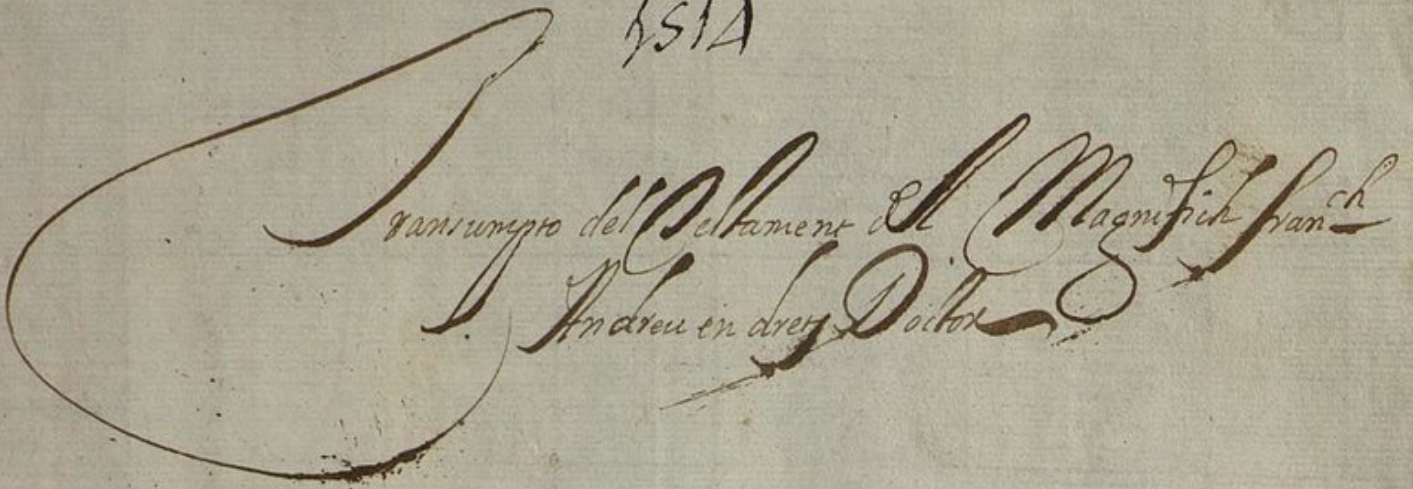 1514
Transumpto del Testament del Magnifich fran^ch
Andreu en drets Doctor